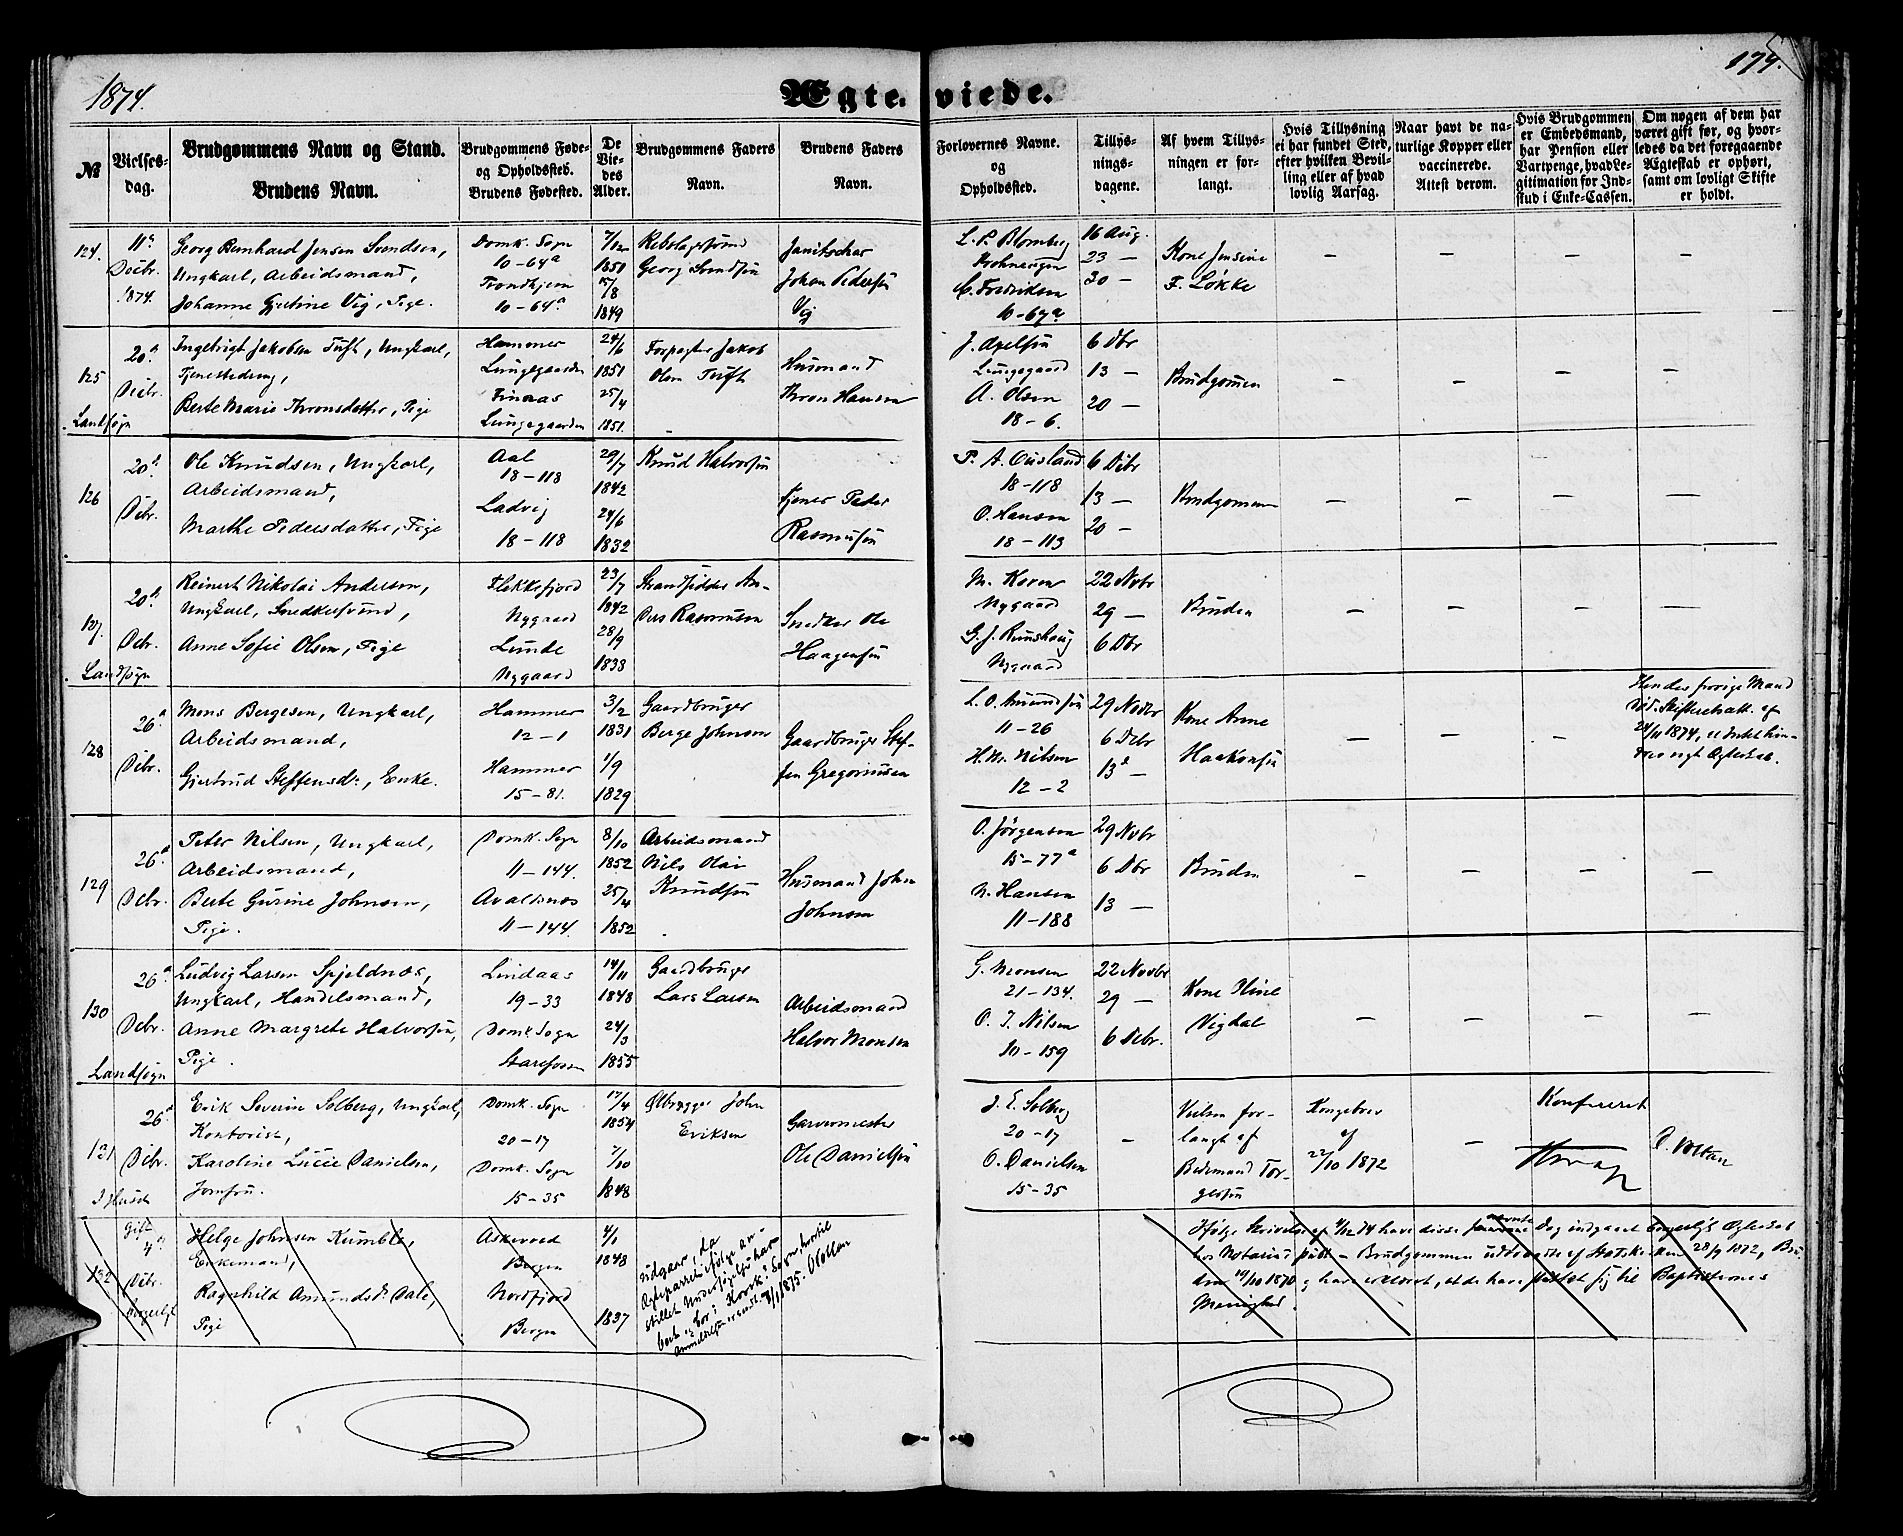 1874.
Ægte-viede.
174.
№
Vielses-
dag.
Brudgommens Navn og Stand.
Brudens Navn.
Brudgommens Føde-
og Opholdssted.
Brudens Fødested.
De
Vie-
des
Alder.
Brudgommens Faders
Navn.
Brudens Faders
Navn.
Forlovernes Navne.
og
Opholdssted.
Tillys-
nings-
dagene.
Af hvem Tillys-
ningen er for-
langt.
Hvis Tillysning
ei har fundet Sted,
efter hvilken Bevil-
ling eller af hvad
lovlig Aarsag.
Naar havt de na-
turlige Kopper eller
vaccinerede.
Attest derom.
Hvis Brudgommen
er Embedsmand,
har Pension eller
Vartpenge, hvad Le-
gitimation for Ind-
skud i Enke-Cassen.
Om nogen af dem har
været gift før, og hvor-
ledes da det foregaaende
Ægteskab er ophørt,
samt om lovligt Skifte
er holdt.
124.
11te
Decbr.
1874.
Georg Bernhard Jensen Svendsen,
Ungkarl, Arbeidsmand,
Johanne Gjertine Vig, Pige.
Domk. Sogn
10-64a
Trondhjem
10-64a
7/12
1851
15/8
1849
Rebslagersvend
Georg Svendsen
Janitschar
Johan Pedersen
Vig
L. P. Blomberg
C. Fredriksen
10-67a
16 Aug.
23 —
30 —
Kone Jensine
F. Løkke
— — — —
125
Landsogn
20de
Decbr.
Ingebrigt Jakobsen Tuft, Ungkarl,
Tjenestedreng,
Berte Marie Thronsdatter, Pige
Hammer
Lungegaarden
Finnaas
Lungegaarden
24/6
1851
25/4
1851.
Forpagter Jakob
Olsen Tuft
Husmand
Thron Hansen
J. Axelsen
Lungegaard
A. Olsen
18-6.
6 Dbr
13 —
20 —
Brudgommen
— — — —
126
20de
Debr.
Ole Knudsen, Ungkarl,
Arbeidsmand,
Marthe Pedersdatter, Pige
Aal
18-118
Ladvig
18-118
29/7
1842
24/6
1832
Knud Halvorsen
Tjener Peder
Rasmusen
P. A. Ousland
18-118
O. Hansen
18-113
6 Debr
13 —
20 —
Brudgommen
— — — —
127.
Landsogn
20de
Debr.
Reinert Nikolai Andersen,
Ungkarl, Snedkersvend,
Anne Sofie Olsen, Pige
Flekkefjord
Nygaard
Lunde
Nygaard
23/7
1842
28/9
1838
Strandsidder An-
ders Rasmusen
Snedker Ole
Haagensen
M. Koren
Nygaard
G. J. Runshaug
Nygaard
22 Novbr
29 —
6 Dbr
Bruden
— — — —
128
26de
Debr.
Mons Bergesen, Ungkarl,
Arbeidsmand,
Gjertrud Steffensdr., Enke.
Hammer
12-1
Hammer
15-81.
3/2
1831
1/9
1829
Gaardbruger
Berge Johnsen
Gaardbruger Stef-
fen Gregoriusen
L. O. Amundsen
11-26
H. M. Nilsen
12-2
29 Novbr
6 Debr
13de —
Kone Anne
Haakonsen
— — —
Hendes forrige Mand
død. Skifteretsatt. af
24/11 1874, at Intet hin-
drer nyt Ægteskab.
129
26de
Debr.
Peter Nilsen, Ungkarl,
Arbeidsmand,
Berte Gurine Johnsen,
Pige.
Domk. Sogn
11-144.
Avaldsnæs
11-144.
8/10
1852
25/4
1852
Arbeidsmand
Nils Olai
Knudsen
Husmand John
Johnsen
O. Jørgensen
15-77a
N. Hansen
11-188
29 Novbr
6 Dbr
13 —
Bruden
— — — —
130
Landsogn
26de
Debr.
Ludvig Larsen Spjeldnæs,
Ungkarl, Handelsmand,
Anne Margrete Halvorsen,
Pige.
Lindaas
19-33
Domk. Sogn
Starefossen
14/11
1848
24/3
1855
Gaardbruger
Lars Larsen
Arbeidsmand
Halvor Monsen
G. Monsen
21-134.
O. J. Nilsen
10-159
22 Novbr
29 —
6 Debr.
Kone Stine
Vigdal
— — — —
131
I Huset
26de
Debr.
Erik Severin Solberg, Ungkarl,
Kontorist,
Karoline Lucie Danielsen,
Jomfru.
Domk. Sogn
20-17
Domk. Sogn
15-35
17/4
1854
7/10
1848
Ølbrygger John
Eriksen
Garvermester
Ole Danielsen
J. E. Solberg
20-17
O. Danielsen
15-35
—
Vielsen for-
langt af
Bedemand Tor-
gersen
Kongebrev
af
22/10 1872
—
Konfereret
132
Gift
4de
Debr.
borgerligt
Helge Johnsen Kumble,
Enkemand,
Ragnhild Amundsdr. Dale,
Pige
Askevold
Bergen
Nordfjord
Bergen
4/1
1848
1837
udgaar, da
Ægteparret ifølge an-
stillet Undersøgelse har
boet og bor i Korsk. Sogn hvortil
Anmeldelsen er sendt. 8/1 1875.
Ifølge Skrivelse af 4/12 74 have disse nævnte Dag indgaaet borgerligt Ægteskab
hos Notarius publ. — Brudgommen udtraadte af Statskirken 28/9 1872, Bru-
den 14/10 1870 og have erklæret, at de have sluttet sig til Baptisternes
Menighed.